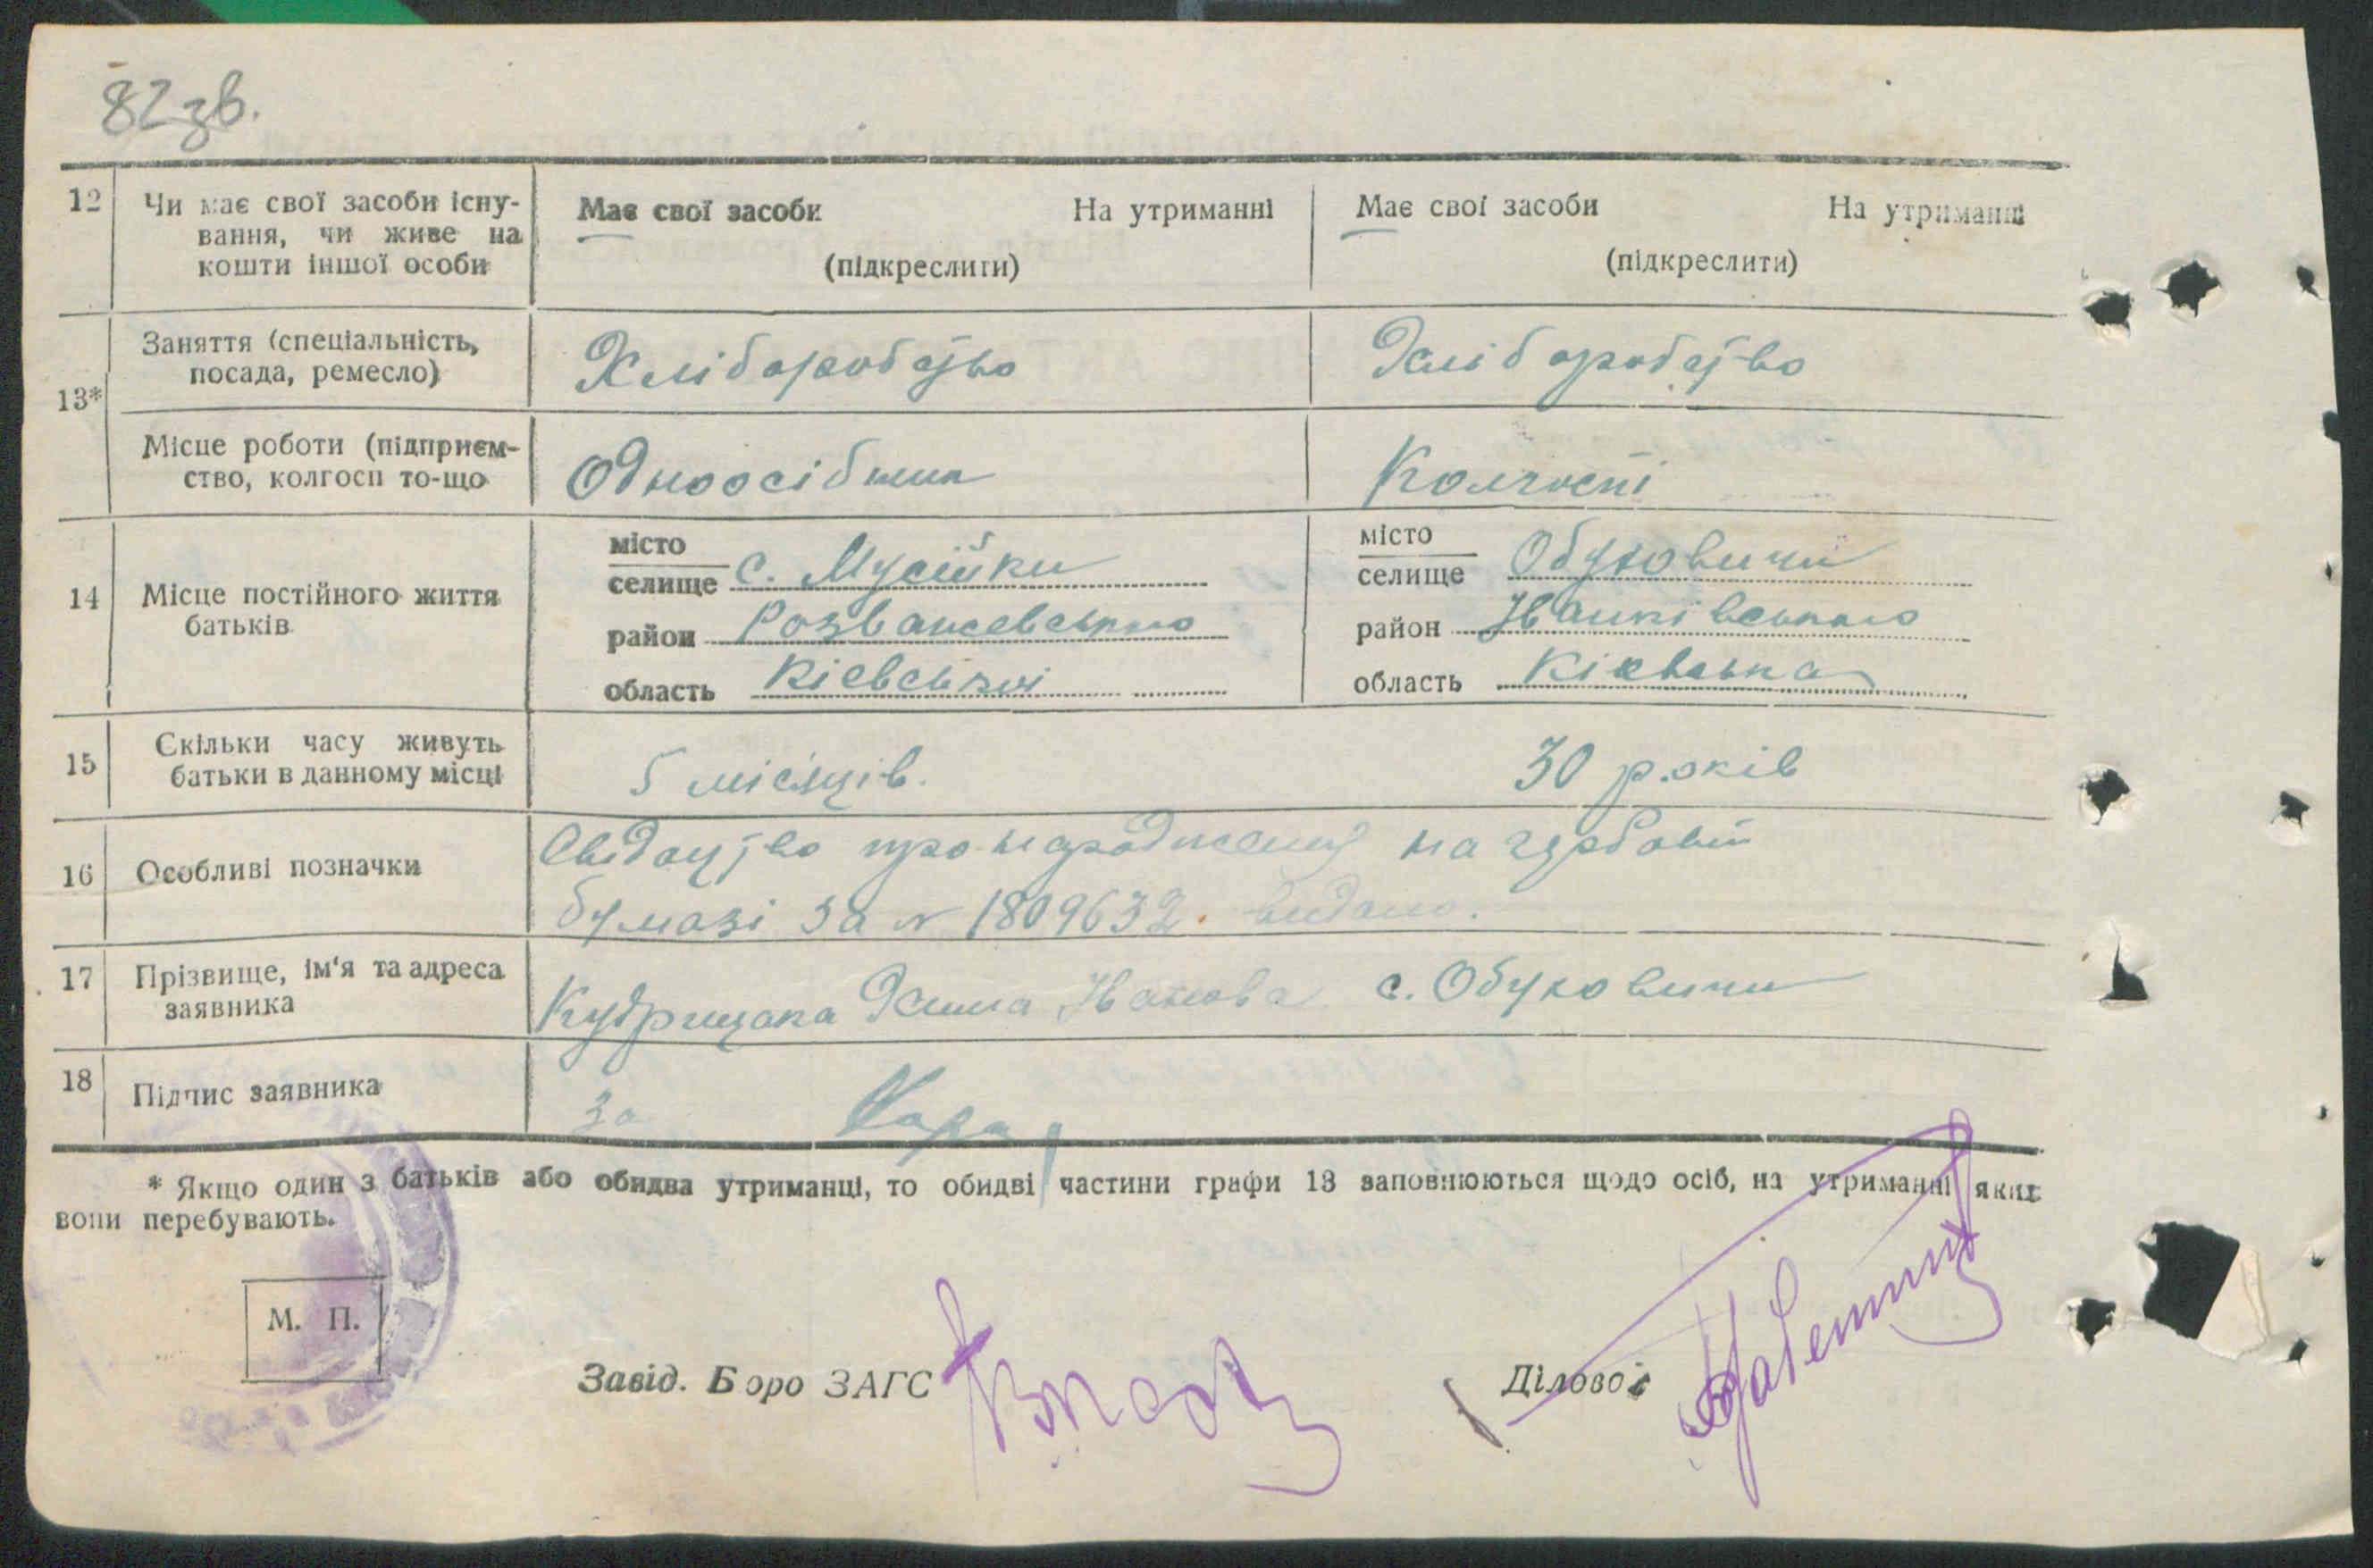 82 зв.
12 Чи має свої засоби існу- Має свої засоби На утриманні Має свої засоби На утриманні
вання, чи живе на
кошти іншої особи (підкреслити) (підкреслити)
13* Заняття (спеціальність, посада, ремесло) Хліборобство Хліборобство
Місце роботи (підприєм- Одноосібник Колгоспі
ство, колгосп то-що
14 Місце постійного життя батьків
місто селище с. Мусійки місто селище Обуховичи
район Розважевського район Іванківського
область Кіевської область Кіевська
15 Скільки часу живуть 5 місяців. 30 років
батьки в данному місці
16 Особливі позначки Свідоцтво про народження на гербовій
бумазі за № 1809632. видано.
17 Прізвище, ім'я та адреса заявника Кудрицька Іванова с. Обуховичи
18 Підпис заявника За
* Якщо один з батьків або обидва утриманці, то обидві частини графи 13 заповнюються щодо осіб, на утриманні яких
вони перебувають.
М. П.
Завід. Бюро ЗАГС Діловод